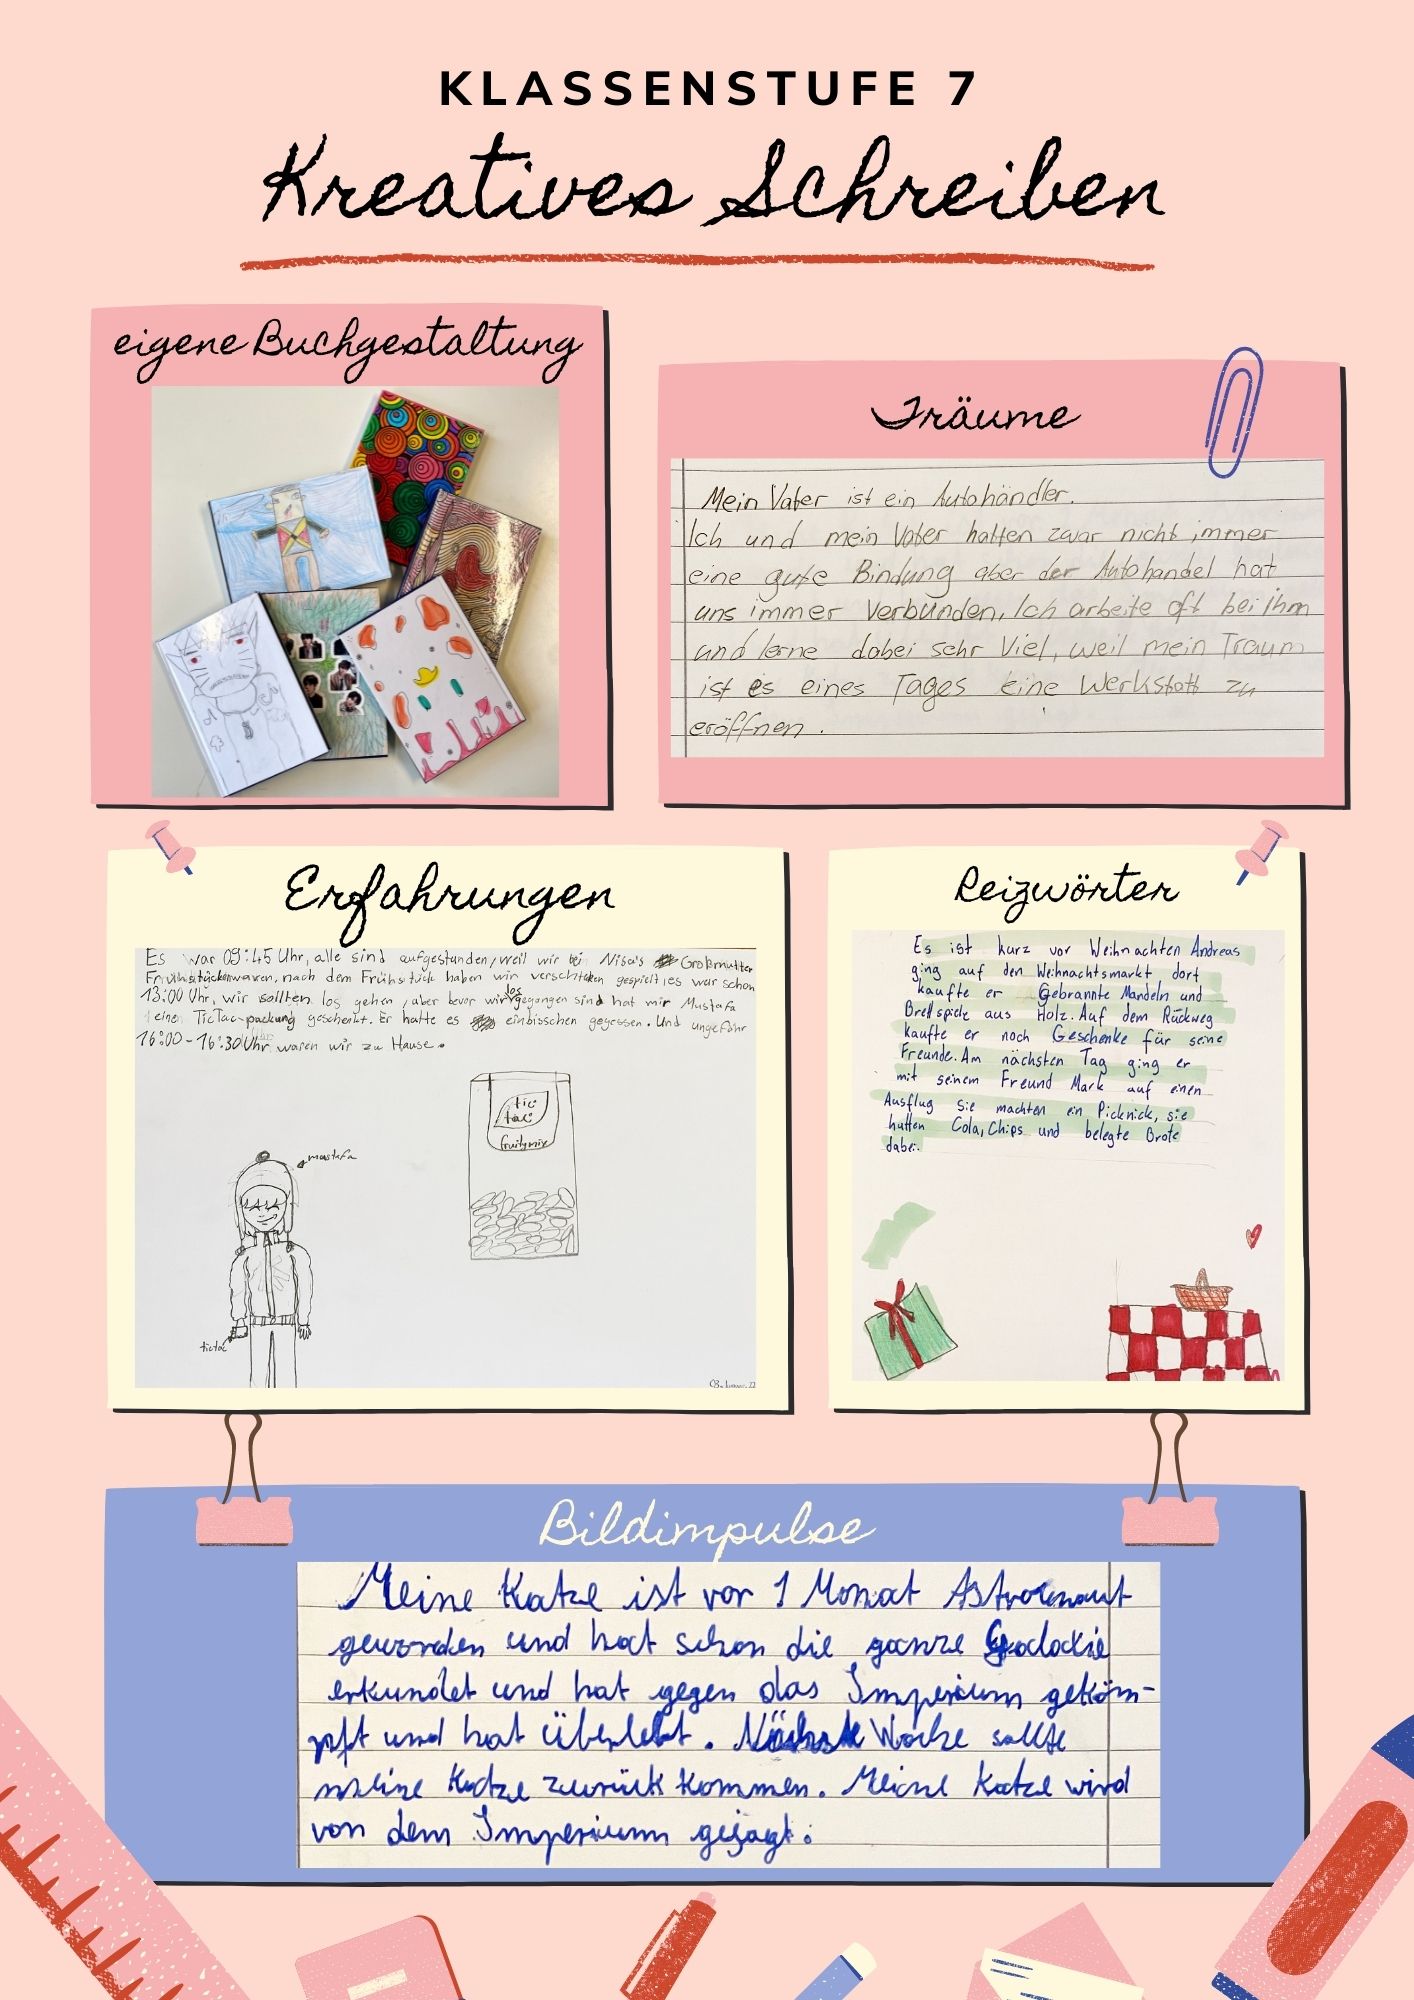 KLASSENSTUFE 7
Kreatives Schreiben
eigene Buchgestaltung
Träume
Mein Vater ist ein Autohändler.
Ich und mein Vater hatten zwar nicht immer
eine gute Bindung aber der Autohandel hat
uns immer Verbunden, Ich arbeite oft bei Ihm
und lerne dabei sehr Viel, weil mein Traum
ist es eines Tages eine Werkstatt zu
eröffnen.
Erfahrungen
Es war 09:45 Uhr, alle sind aufgestanden, weil wir bei Nisa's Großmutter
Frühstücken waren, nach dem Frühstück haben wir verstecken gespielt es war schon
13:00 Uhr, wir sollten los gehen, aber bevor wir los gegangen sind hat mir Mustafa
eine TicTac-packung geschenkt. Er hatte es einbisschen gegessen. Und ungefähr
16:00-16:30 Uhr waren wir zu Hause.
tic
tac
fruitymix
mustafa
tictac
Reizwörter
Es ist kurz vor Weihnachten Andreas
ging auf den Weihnachtsmarkt dort
kaufte er Gebrannte Mandeln und
Brettspiele aus Holz. Auf dem Rückweg
kaufte er noch Geschenke für seine
Freunde. Am nächsten Tag ging er
mit seinem Freund Mark auf einen
Ausflug sie machten ein Picknick, sie
hatten Cola, Chips und belegte Brote
dabei.
Bildimpulse
Meine Katze ist vor 1 Monat Astronaut
geworden und hat schon die ganze Galaxie
erkundet und hat gegen das Imperium gekäm-
pft und hat Überlebt. Nächste Woche sollte
meine Katze zurück kommen. Meine Katze wird
von dem Imperium gejagt.